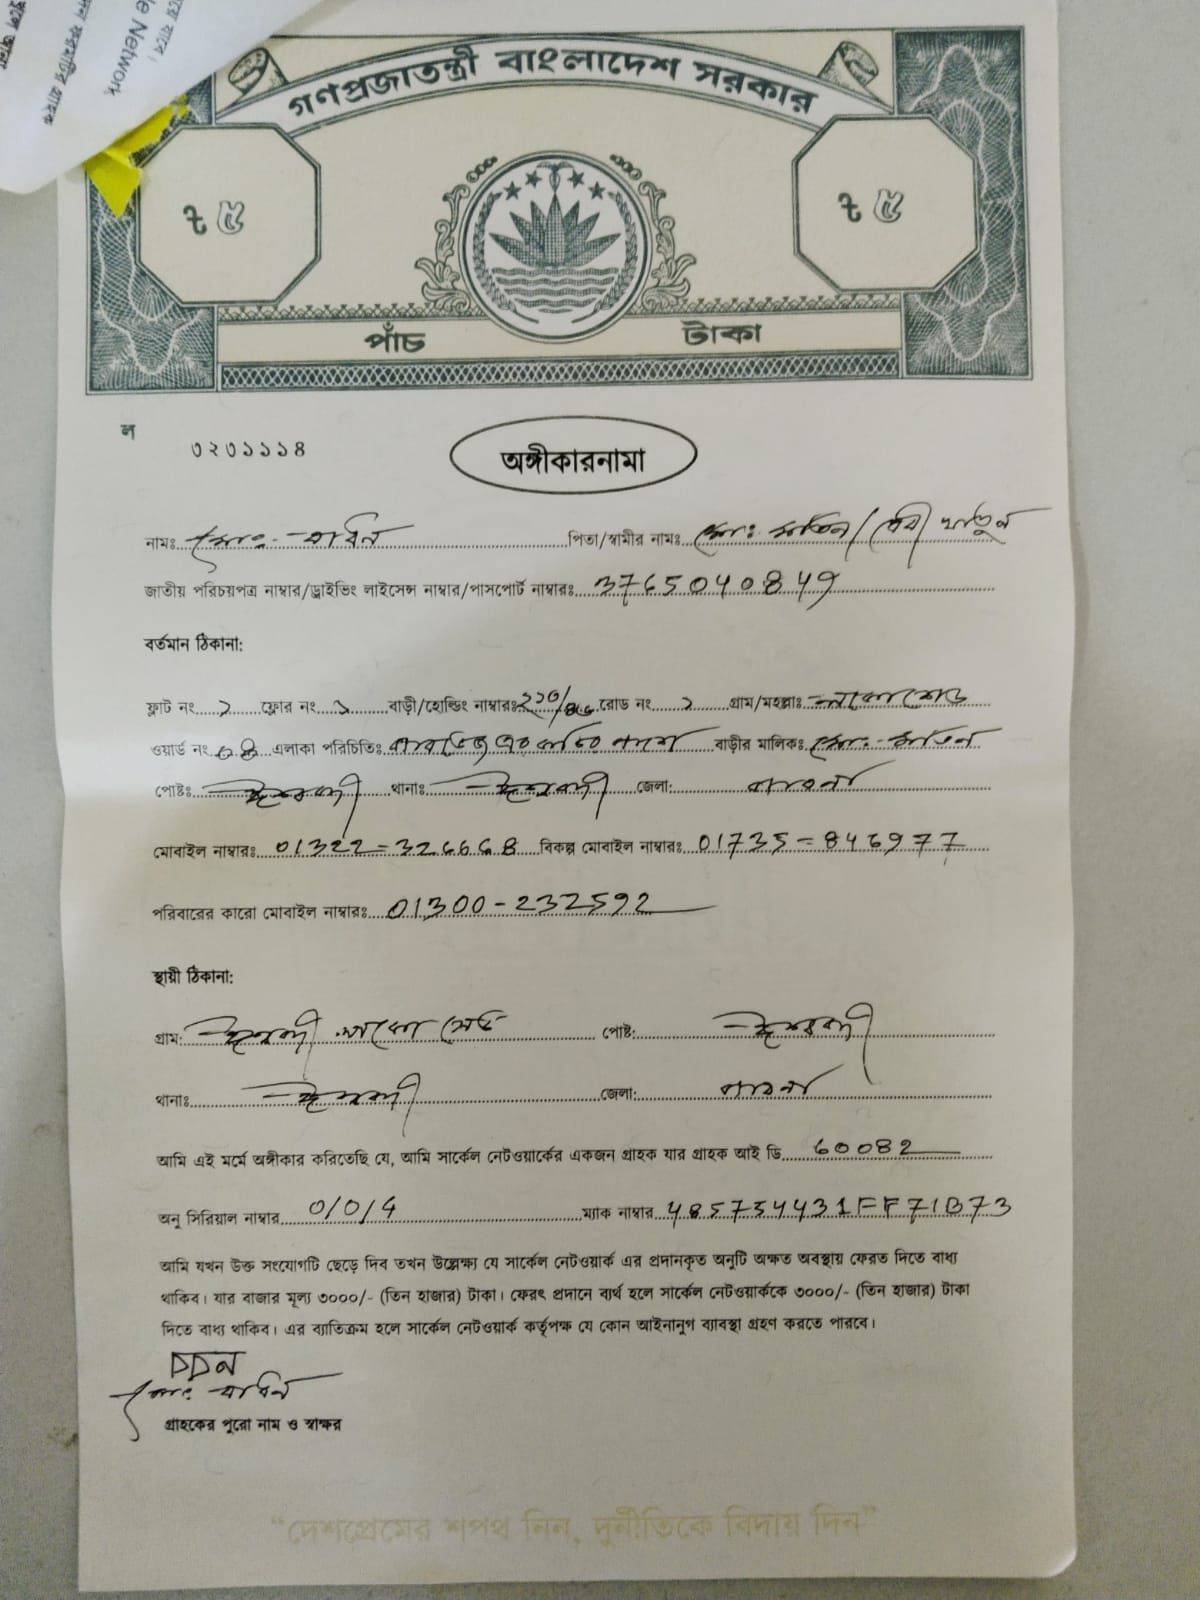 de Network
গণপ্রজাতন্ত্রী বাংলাদেশ সরকার
৳ ৫ ৳ ৫
পাঁচ টাকা
ল ৩২৩১১১৪
অঙ্গীকারনামা
নামঃ মোঃ পিতা/স্বামীর নামঃ মোঃ মতিন / খাতুন
জাতীয় পরিচয়পত্র নাম্বার/ড্রাইভিং লাইসেন্স নাম্বার/পাসপোর্ট নাম্বারঃ 3765040849
বর্তমান ঠিকানা:
ফ্লাট নং ১ ফ্লোর নং ১ বাড়ী/হোল্ডিং নাম্বারঃ রোড নং ১ গ্রাম/মহল্লাঃ
ওয়ার্ড নং এলাকা পরিচিতিঃ বাড়ীর মালিকঃ মোঃ মতিন
পোষ্টঃ ঈশ্বরদী থানাঃ ঈশ্বরদী জেলা: পাবনা
মোবাইল নাম্বারঃ 01322-326668 বিকল্প মোবাইল নাম্বারঃ 01735-846977
পরিবারের কারো মোবাইল নাম্বারঃ 01300-232592
স্থায়ী ঠিকানা:
গ্রাম: ঈশ্বরদী পোষ্ট: ঈশ্বরদী
থানাঃ ঈশ্বরদী জেলা: পাবনা
আমি এই মর্মে অঙ্গীকার করিতেছি যে, আমি সার্কেল নেটওয়ার্কের একজন গ্রাহক যার গ্রাহক আই ডি 60082
অনু সিরিয়াল নাম্বার 0/0/4 ম্যাক নাম্বার 485754431FF71B73
আমি যখন উক্ত সংযোগটি ছেড়ে দিব তখন উল্লেক্ষ্য যে সার্কেল নেটওয়ার্ক এর প্রদানকৃত অনুটি অক্ষত অবস্থায় ফেরত দিতে বাধ্য
থাকিব। যার বাজার মূল্য ৩০০০/- (তিন হাজার) টাকা। ফেরৎ প্রদানে ব্যর্থ হলে সার্কেল নেটওয়ার্ককে ৩০০০/- (তিন হাজার) টাকা
দিতে বাধ্য থাকিব। এর ব্যতিক্রম হলে সার্কেল নেটওয়ার্ক কর্তৃপক্ষ যে কোন আইনানুগ ব্যাবস্থা গ্রহণ করতে পারবে।
মোঃ
গ্রাহকের পুরো নাম ও স্বাক্ষর
“দেশপ্রেমের শপথ নিন, দুর্নীতিকে বিদায় দিন”